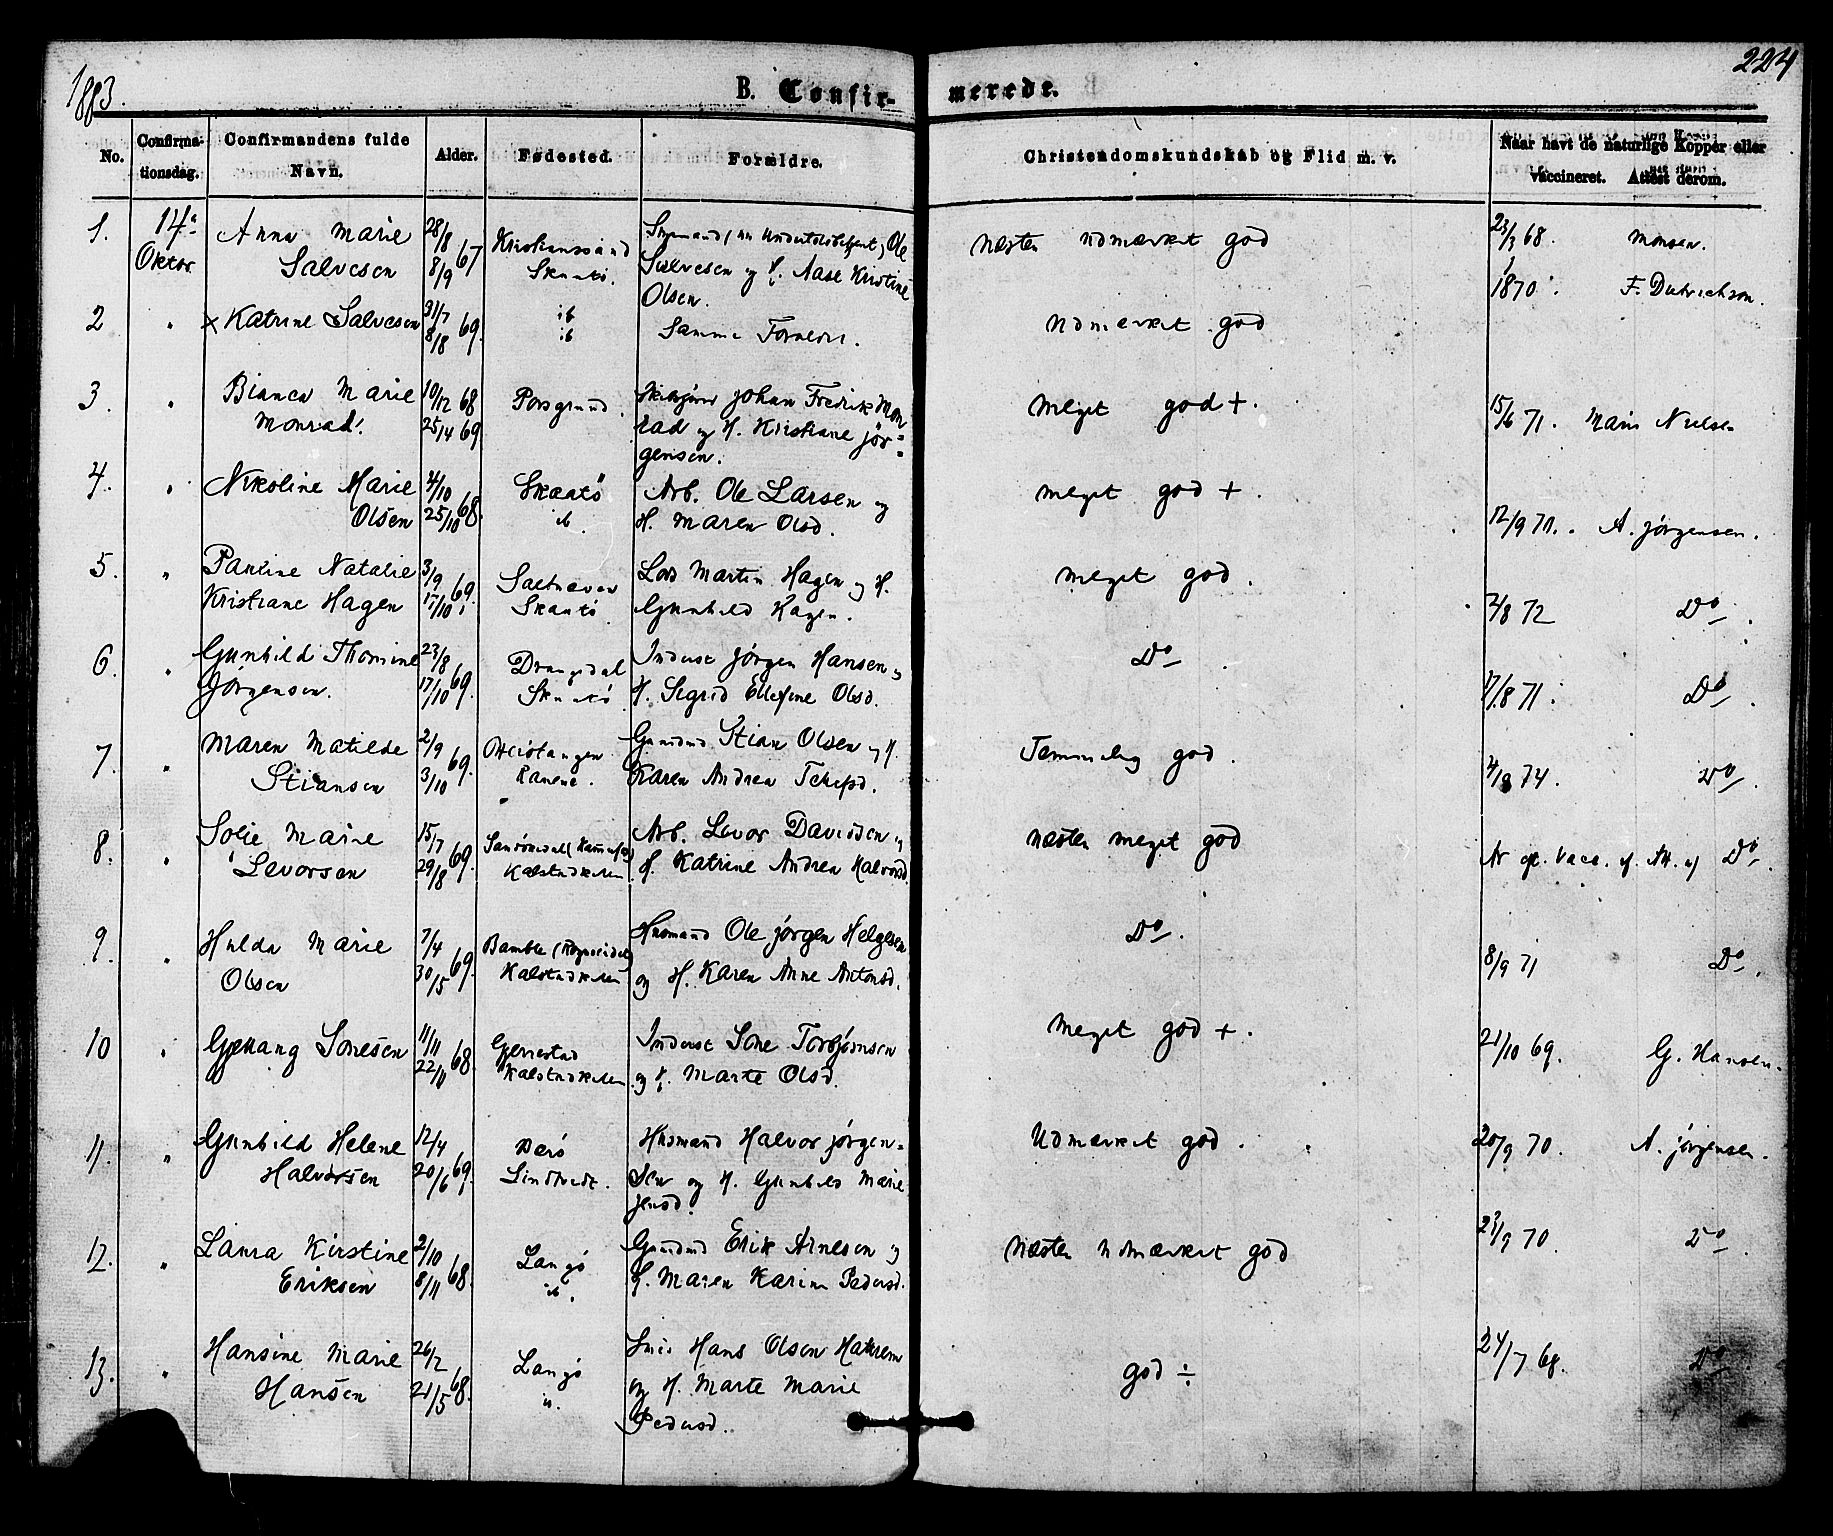 1883.
B. Confir-
merede.
224
No.
Confirma-
tionsdag.
Confirmandens fulde
Navn.
Alder.
Fødested.
Forældre.
Christendomskundskab og Flid m. v.
Naar havt de naturlige Kopper eller
vaccineret. Attest derom.
1. 14de Anna Marie 28/8 67 Kristianssand Ole
Oktor Salvesen 8/9 Skaatö. Salvesen og H. Aase Kristine
Olsen.
Næsten udmærket god
23/3 68. Monsen.
2 " x Katrine Salvesen 31/7 8/18 69. ib ib Samme Forældre.
Udmærket god
1870. F. Dietrichson.
3. " Bianca Marie 10/12 68 Porsgrund. Johan Fredrik Mon
Monrad. 25/4 69 rad og H. Kristiane Jör=
gensen.
Meget god +.
15/6 71. Maris Nielsen
4. " Nikoline Marie 4/10 68. Skaatö Arb. Ole Larsen og
Olsen 25/10 ib. H. Maren Olsd.
Meget god +.
12/9 71. A. Jörgensen.
5. " Pauline Natalie 3/9 69. Saltnæven Lods Martin Hagen og H.
Kristiane Hagen 17/10 Skaatö Gunhild Hagen.
Meget god.
2/8 72 Do
6. " Gunhild Thomine 23/8 69. Drangedal Inderst Jörgen Hansen og
Jörgensen. 17/10 Skaatö H. Sigrid Ellefine Olsd.
Do
17/8 71. Do
7. " Maren Matilde 2/9 69. Gaardmd Stian Olsen og H.
Stiansen 3/10 Karen Andrea Terjesd.
Temmelig god.
4/8 74. Do.
8. " Solie Marie 15/7 69. Sandökedal Arb. Levor Davidsen og
Levorsen 29/8 Kalstadkilen H. Katrine Andrea Halvorsd.
Næsten meget god
Do.
9. " Hulda Marie 7/4 69. Bamble Husmand Ole Jörgen Helgesen
Olsen 30/5 Kalstadkilen og H. Karen Anne Antonsd.
Do.
8/9 71 Do.
10 " Gjermang Sonesen 11/11 68. Gjerrestad Inderst Sone Torbjörnsen
22/11 Kalstadkilen og H. Marte Olsd.
Meget god +.
21/10 69. G. Hansen.
11. " Gunhild Helene 12/4 69. Husmand Halvor Jörgen=
Halvorsen 20/6 Lindtvedt. sen og H. Gunhild Marie
Jensd.
Udmærket god.
20/9 70. A. Jörgensen.
12. " Laura Kirstine 2/10 68. Langö Gaardmd Erik Arnesen og
Eriksen 8/11 ib. H. Maren Karine Pedersd.
Næsten udmærket god
23/9 70. Do.
13. " Hansine Marie 26/2 68. Langö Hans Olsen
Hansen 21/5 og H. Marte Marie
Pedersd.
god ÷
24/7 68. Do